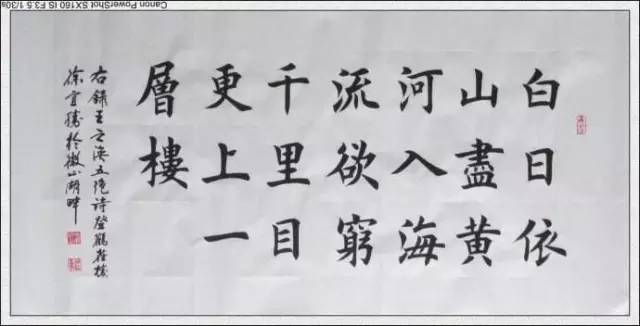 白日依
山盡黄
河入海
流欲窮
千里目
更上一
層樓
右錄王之渙五绝诗登鶴雀樓
徐宜勝於微山湖畔
Canon PowerShot SX160 IS F3.5 1/30s